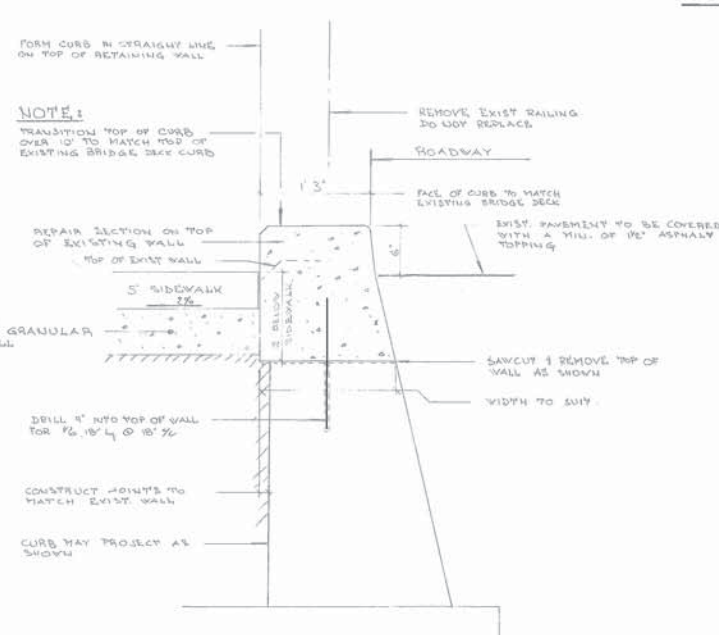 FORM CURB IN STRAIGHT LINE
ON TOP OF RETAINING WALL
NOTE:
TRANSITION TOP OF CURB
OVER 10' TO MATCH TOP OF
EXISTING BRIDGE DECK CURB
REMOVE EXIST RAILING
DO NOT REPLACE
ROADWAY
1' 3"
FACE OF CURB TO MATCH
EXISTING BRIDGE DECK
EXIST. PAVEMENT TO BE COVERED
WITH A MIN. OF 1½" ASPHALT
TOPPING
6"
REPAIR SECTION ON TOP
OF EXISTING WALL
TOP OF EXIST WALL
5' SIDEWALK
2%
BELOW
SIDEWALK
GRANULAR
SAWCUT & REMOVE TOP OF
WALL AS SHOWN
WIDTH TO SUIT
DRILL 9" INTO TOP OF WALL
FOR 18" @ 18" c/c
CONSTRUCT JOINTS TO
MATCH EXIST. WALL
CURB MAY PROJECT AS
SHOWN